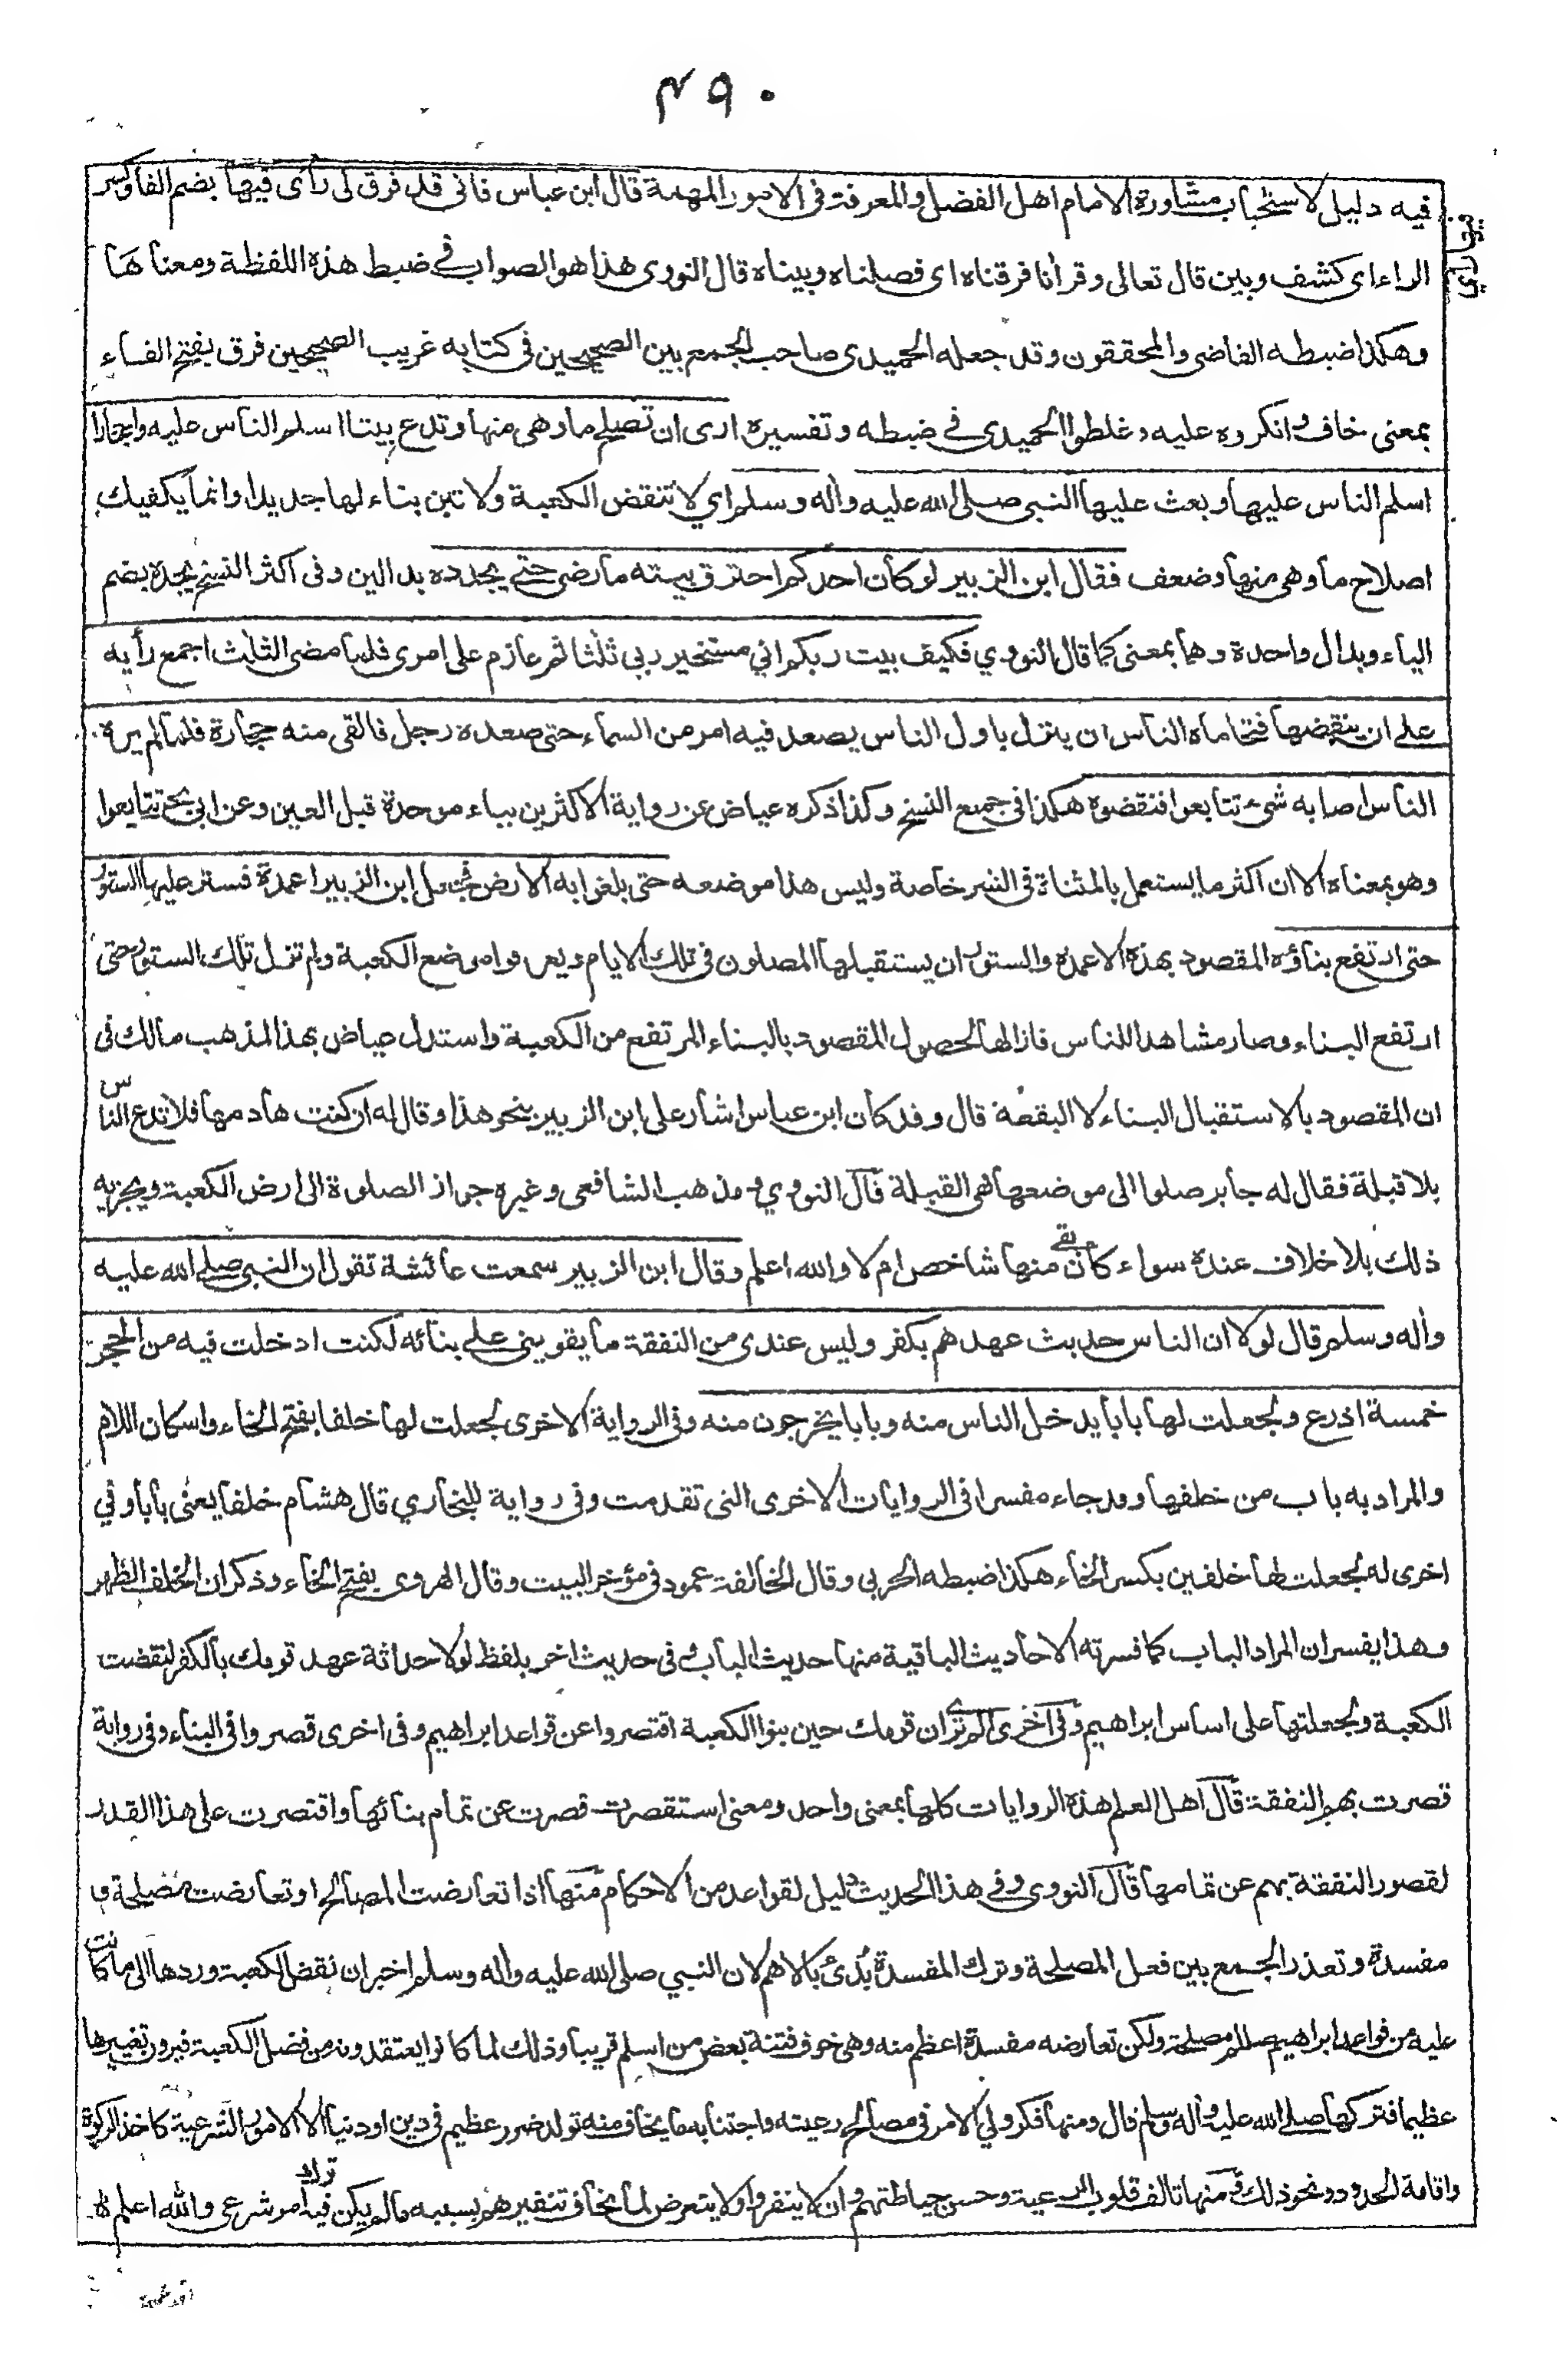 ٤٩٠
فيه دليل لاستحباب مشاورة الامام اهل الفضل والمعرفة في الامور المهمة قال ابن عباس فاني قد فرق لي رأى فيها بضم الفاء وكسر
الراء اى كشف وبين قال تعالى وقرأنا فرقناه اى فصلناه وبيناه قال النووى هذا هو الصواب في ضبط هذه اللفظة ومعناها
وهكذا ضبطه القاضى والمحققون وقد جعله الحميدى صاحب الجمع بين الصحيحين فى كتابه غريب الصحيحين فرق بفتح الفاء
بمعنى خاف وانكروه عليه وغلطوا الحميدى في ضبطه وتفسيره ارى ان تصلح ما وهى منها وتدع بيتا اسلم الناس عليه واحجارا
اسلم الناس عليها وبعث عليها النبى صلى الله عليه وأله وسلم اي لا تنقض الكعبة ولا تبن بناء لها جديدا وانما يكفيك
اصلاح ما وهى منها وضعف فقال ابن الزبير لو كان احدكم احترق بيته ما رضى حتى يجدده بدالين وفى اكثر النسخ يجده بضم
الياء وبدال واحدة وهما بمعنى كما قال النووي فكيف بيت ربكم اني مستخير ربي ثلثا ثم عازم على امرى فلما مضى الثلث اجمع رأيه
على ان ينقضها فتحاماه الناس ان ينزل باول الناس يصعد فيه امر من السماء حتى صعده رجل فالقى منه حجارة فلما لم يره
الناس اصابه شئ تتابعوا فنقضوه هكذا فى جميع النسخ وكذا ذكره عياض عن رواية الاكثرين بباء موحدة قبل العين وعن ابى بحر تتايعوا
وهو بمعناه الا ان اكثر ما يستعمل بالمثناة فى الشر خاصة وليس هذا موضعه حتى بلغوا به الارض فجعل ابن الزبير اعمدة فستر عليها الستور
حتى ارتفع بناؤه المقصود بهذه الاعمدة والستور ان يستقبلها المصلون فى تلك الايام ويعرفوا موضع الكعبة ولم تزل تلك الستور حتى
ارتفع البناء وصار مشاهدا للناس فازالها لحصول المقصود بالبناء المرتفع من الكعبة واستدل عياض بهذا لمذهب مالك فى
ان المقصود بالاستقبال البناء لا البقعة قال وقد كان ابن عباس اشار على ابن الزبير بنحو هذا وقال له ان كنت هادمها فلا تدع الناس
بلا قبلة فقال له جابر صلوا الى موضعها فهى القبلة قال النووي ومذهب الشافعى وغيره جواز الصلوة الى ارض الكعبة ويجزيه
ذلك بلا خلاف عنده سواء كان بقي منها شاخص ام لا والله اعلم وقال ابن الزبير سمعت عائشة تقول ان النبى صلى الله عليه
وأله وسلم قال لولا ان الناس حديث عهدهم بكفر وليس عندى من النفقة ما يقوينى على بنائه لكنت ادخلت فيه من الحجر
خمسة اذرع ولجعلت لها بابا يدخل الناس منه وبابا يخرجون منه وفى الرواية الاخرى لجعلت لها خلفا بفتح الخاء واسكان اللام
والمراد به باب من خلفها وقد جاء مفسرا فى الروايات الاخرى التى تقدمت وفى رواية للبخاري قال هشام خلفا يعنى بابا وفي
اخرى له لجعلت لها خلفين بكسر الخاء هكذا ضبطه الحربى وقال الخالفة عمود فى مؤخر البيت وقال الهروى بفتح الخاء وذكر ان الخلف الظهر
وهذا يفسر ان المراد الباب كما فسرته الاحاديث الباقية منها حديث الباب وفى حديث اخر بلفظ لولا حداثة عهد قومك بالكفر لنقضت
الكعبة ولجعلتها على اساس ابراهيم وفى اخرى الم ترى ان قومك حين بنوا الكعبة اقتصروا عن قواعد ابراهيم وفى اخرى قصروا فى البناء وفى رواية
قصرت بهم النفقة قال اهل العلم هذه الروايات كلها بمعنى واحد ومعنى استقصرت قصرت عن تمام بنائها واقتصرت على هذا القدر
لقصور النفقة بهم عن تمامها قال النووى وفى هذا الحديث دليل لقواعد من الاحكام منها اذا تعارضت المصالح او تعارضت مصلحة و
مفسدة وتعذر الجمع بين فعل المصلحة وترك المفسدة بدئ بالاهم لان النبي صلى الله عليه وأله وسلم اخبر ان نقض الكعبة وردها الى ما كانت
عليه من قواعد ابراهيم صللم مصلحة ولكن تعارضه مفسدة اعظم منه وهى خوف فتنة بعض من اسلم قريبا وذلك لما كانوا يعتقدونه من فضل الكعبة فيرون تغييرها
عظيما فتركها صلى الله عليه وأله وسلم قال ومنها فكر ولي الامر فى مصالح رعيته واجتنابه ما يخاف منه تولد ضرر عظيم فى دين او دنيا الا الامور الشرعية كاخذ الزكوة
واقامة الحدود ونحو ذلك ومنها تالف قلوب الرعية وحسن حياطتهم وان لا ينفروا ولا يتعرض لما يخاف تنفيرهم بسببه ما لم يكن فيه ترك امر شرعى والله اعلم